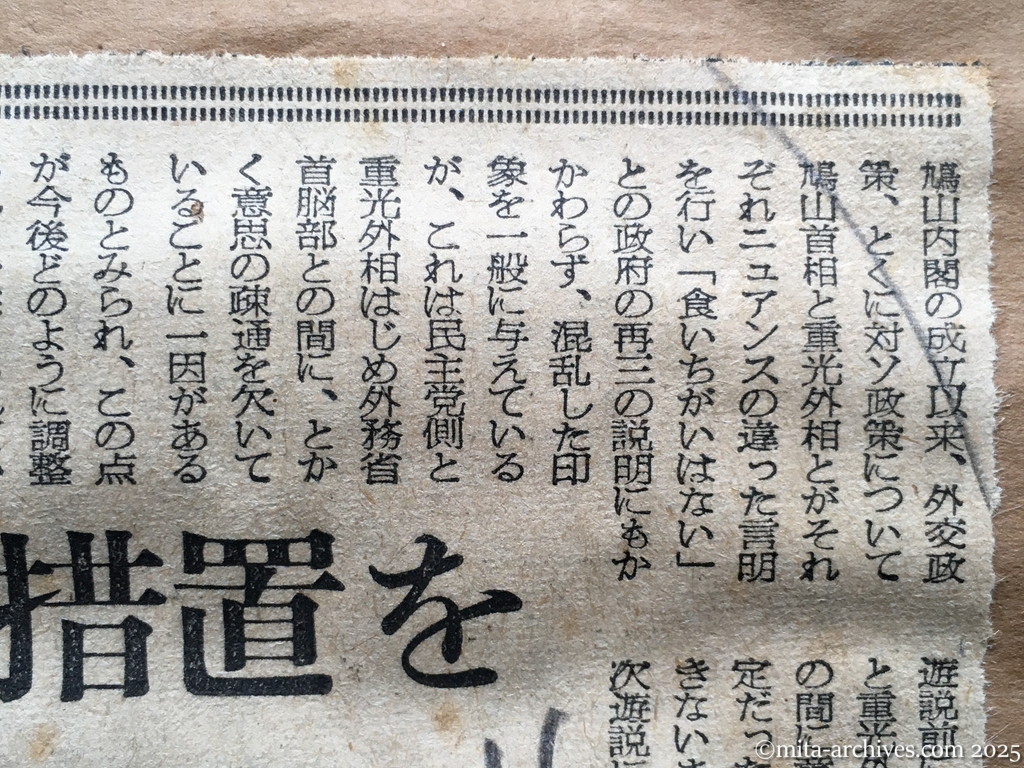 鳩山内閣の成立以来、外交政
策、とくに対ソ政策について
鳩山首相と重光外相とがそれ
ぞれニュアンスの違った言明
を行い「食いちがいはない」
との政府の再三の説明にもか
かわらず、混乱した印
象を一般に与えている
が、これは民主党側と
重光外相はじめ外務省
首脳部との間に、とか
く意思の疎通を欠いて
いることに一因がある
ものとみられ、この点
が今後どのように調整
措置を
遊説前
と重光
の間に
定だった
きない
次遊説
©mita-archives.com 2025